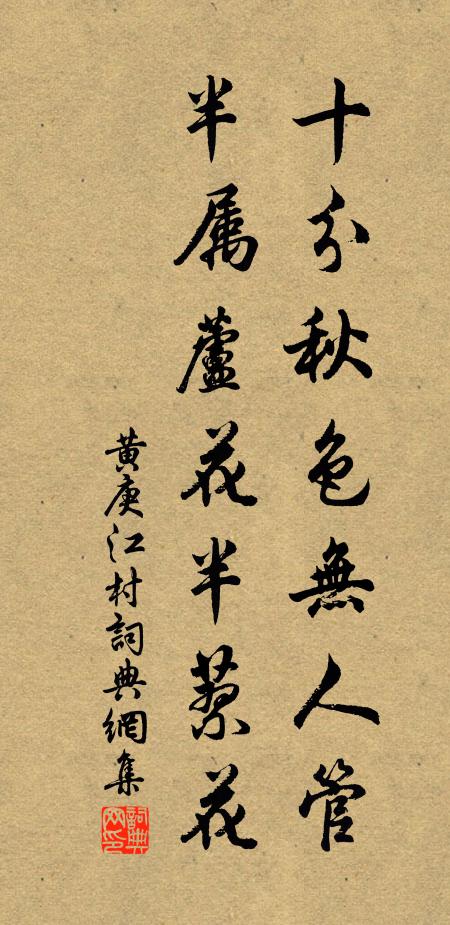 十分秋色無人管
半属蘆花半蓼花
黄庚江村詞典網集
詞典網印